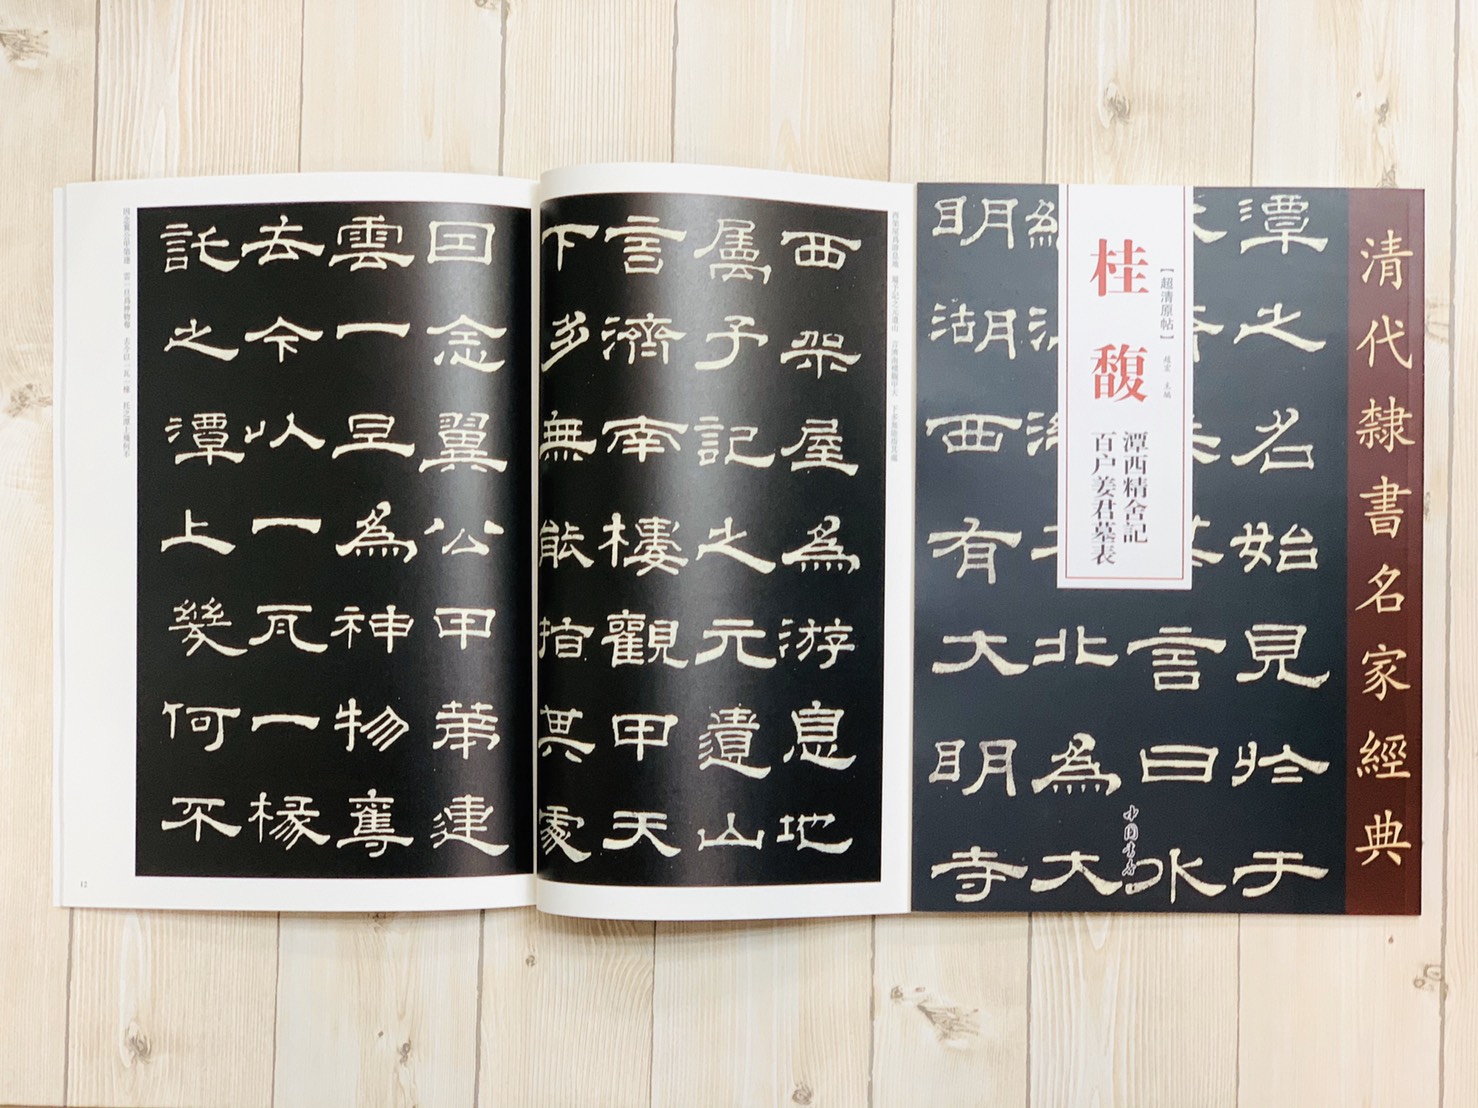 清代隸書名家經典
【超清原帖】
趙宏 主編
桂馥
潭西精舍記
百户姜君墓表
潭之名始見於于
言曰水
北為大
明湖西有大明寺
中国书店
西架屋為游息地
屬予記之元遺山
言濟南樓觀甲天
下多無能指其處
因念翼公甲第連
雲一旦為神物奪
去今以一瓦一椽
託之潭上幾何不
12